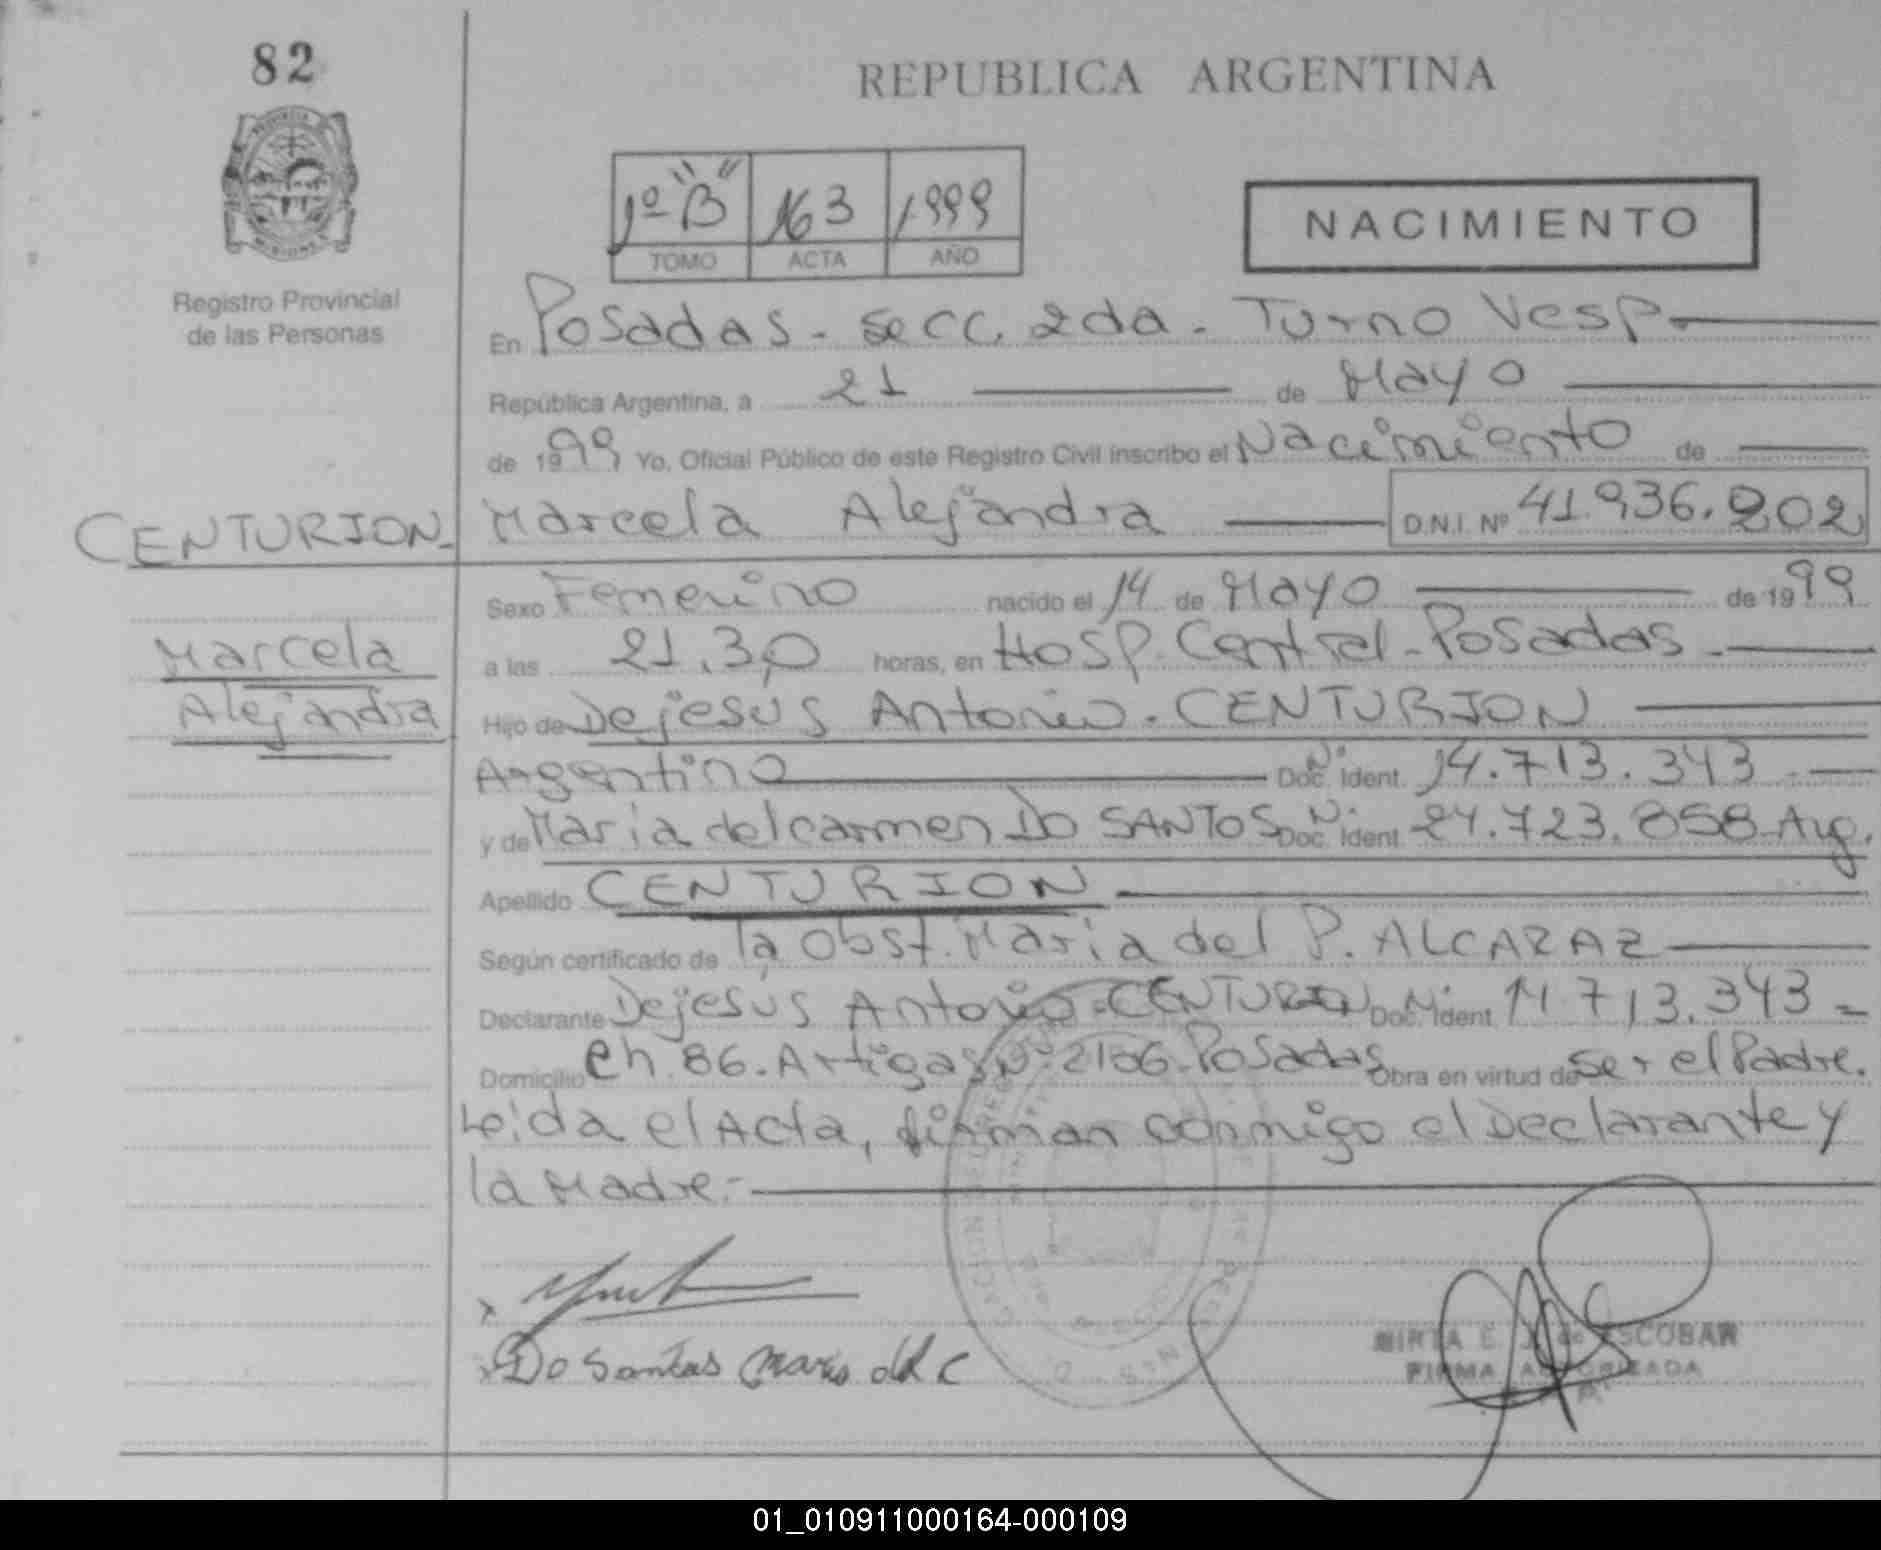 82
REPUBLICA ARGENTINA
1º "B" 163 1999
TOMO ACTA AÑO
NACIMIENTO
Registro Provincial
de las Personas
En Posadas - secc. 2da - Turno Vesp.
República Argentina, a 21 de Mayo
de 1999 Yo, Oficial Público de este Registro Civil inscribo el Nacimiento de
CENTURION Marcela Alejandra D.N.I. Nº 41.936.202
Sexo Femenino nacido el 14 de Mayo de 1999
Marcela
Alejandra
a las 21.30 horas, en Hosp. Central - Posadas -
Hijo de Dejesús Antonio - CENTURION
Argentino Doc. Ident. Nº 14.713.343 -
y de Maria del carmen DO SANTOS Doc. Ident. N. 24.723.858 Arg.
Apellido CENTURION
Según certificado de la Obst. Maria del P. ALCARAZ
Declarante Dejesús Antonio - CENTURION Doc. Ident. N. 14.713.343 -
Domicilio Ch. 86 - Artigas Nº 2106 - Posadas Obra en virtud de ser el Padre.
Leida el Acta, firman conmigo el Declarante y
la Madre.-
Do Santos Maria del C
MIRTA E. de ESCOBAR
FIRMA AUTORIZADA
01_010911000164-000109